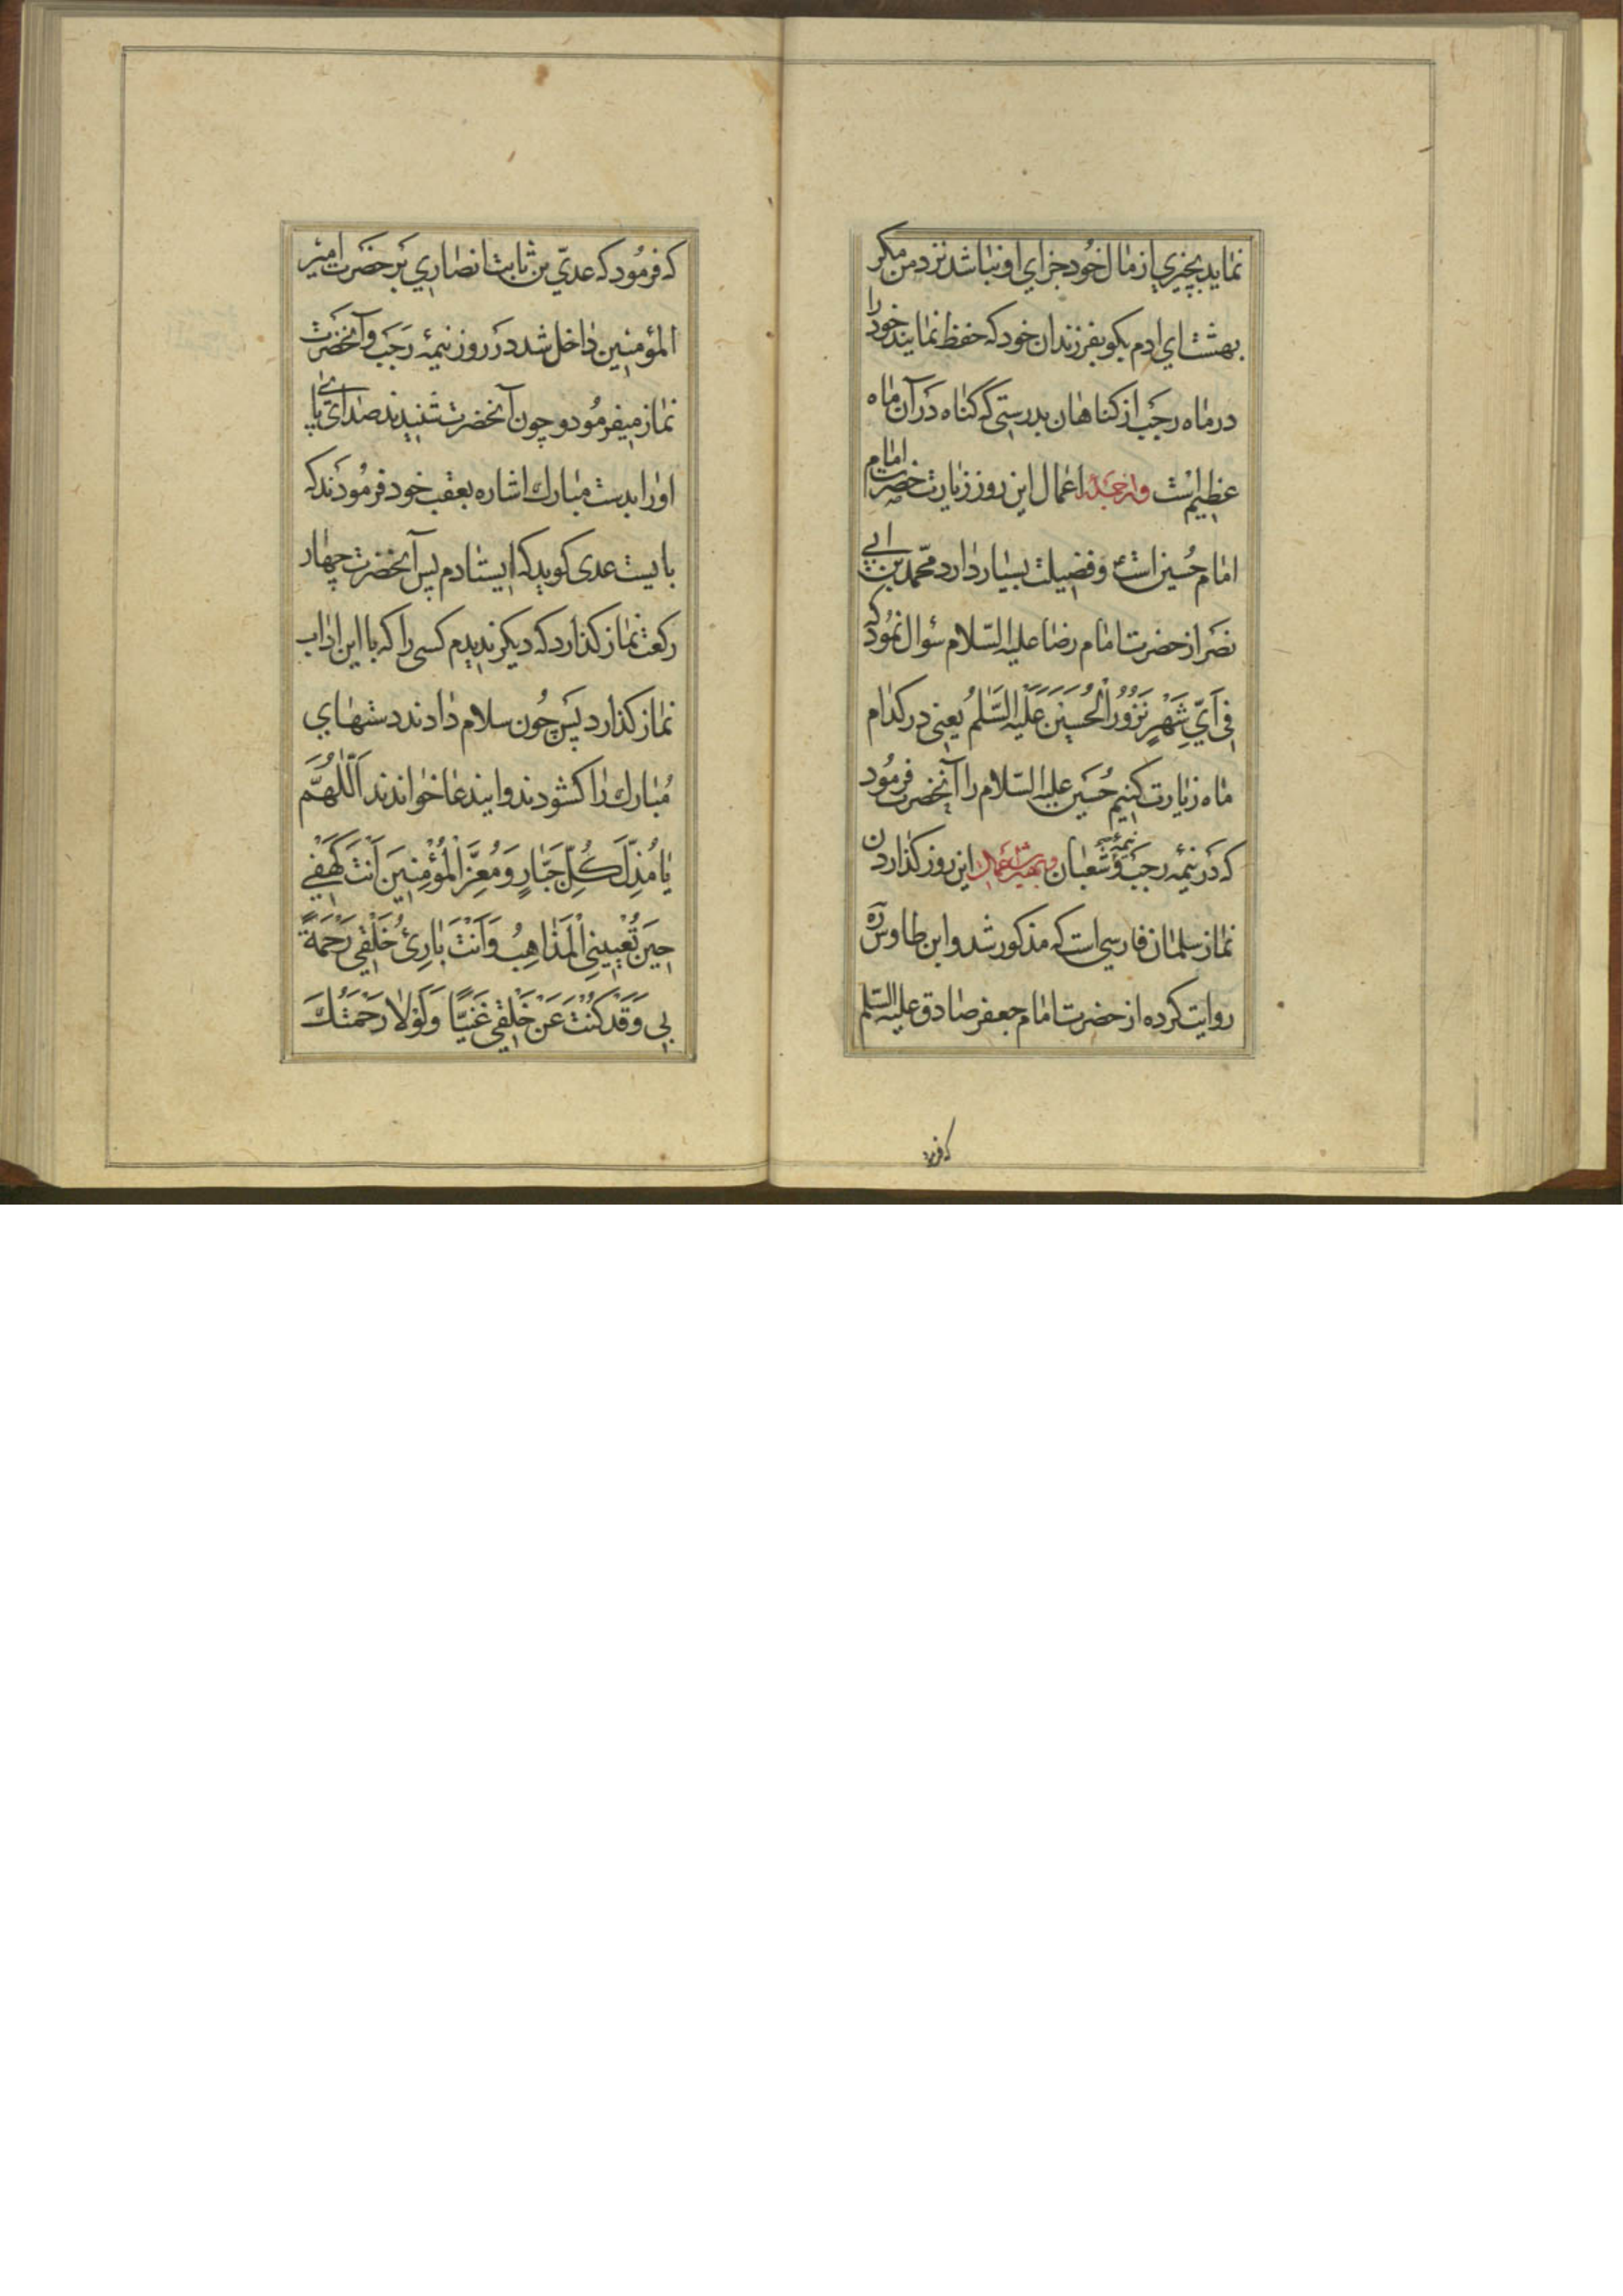 نمايد بچيزي از مال خود جزاي او نباشد نزد من مكر
بهشت اي ادم بكو بفرزندان خود كه حفظ نمايند خود را
در ماه رجب از كناهان بدرستي كه كناه در آن ماه
عظيم است و از جمله اعمال اين روز زيارت حضرت امام
امام حسين است و فضيلت بسيار دارد محمد بن ابي
نصر از حضرت امام رضا عليه السلام سؤال نمود كه
فِي اَيِّ شَهْرٍ نَزُورُ الْحُسَيْنَ عَلَيْهِ السَّلٰمُ يعني در كدام
ماه زيارت كنيم حسين عليه السلام را آنحضرت فرمود
كه در نيمۀ رجب و نيمۀ شعبان و بهترين اعمال اين روز كذاردن
نماز سلمان فارسي است كه مذكور شد و ابن طاوس ره
روايت كرده از حضرت امام جعفر صادق عليه السلم
كه فرمود
كه فرمود كه عديّ بن ثابت انصاري بر حضرت امير
المؤمنين داخل شد در روز نيمۀ رجب و آنحضرت
نماز ميفرمود و چون آنحضرت شنيدند صداى پاى
او را بدست مبارك اشاره بعقب خود فرمودند كه
بايست عدى كويد كه ايستادم پس آنحضرت چهار
ركعت نماز كذارد كه ديكر نديدم كسى را كه با اين اداب
نماز كذارد پس چون سلام دادند دستهاي
مبارك را كشودند و ايندعا خواندند اَللّٰهُمَّ
يٰا مُذِلَّ كُلِّ جَبّٰارٍ وَ مُعِزَّ الْمُؤْمِنِينَ اَنْتَ كَهْفِي
حِينَ تُعْيِينِي الْمَذٰاهِبُ وَ اَنْتَ بٰارِئُ خَلْقِي رَحْمَةً
بِي وَ قَدْ كُنْتَ عَنْ خَلْقِي غَنِيًّا وَ لَوْلٰا رَحْمَتُكَ